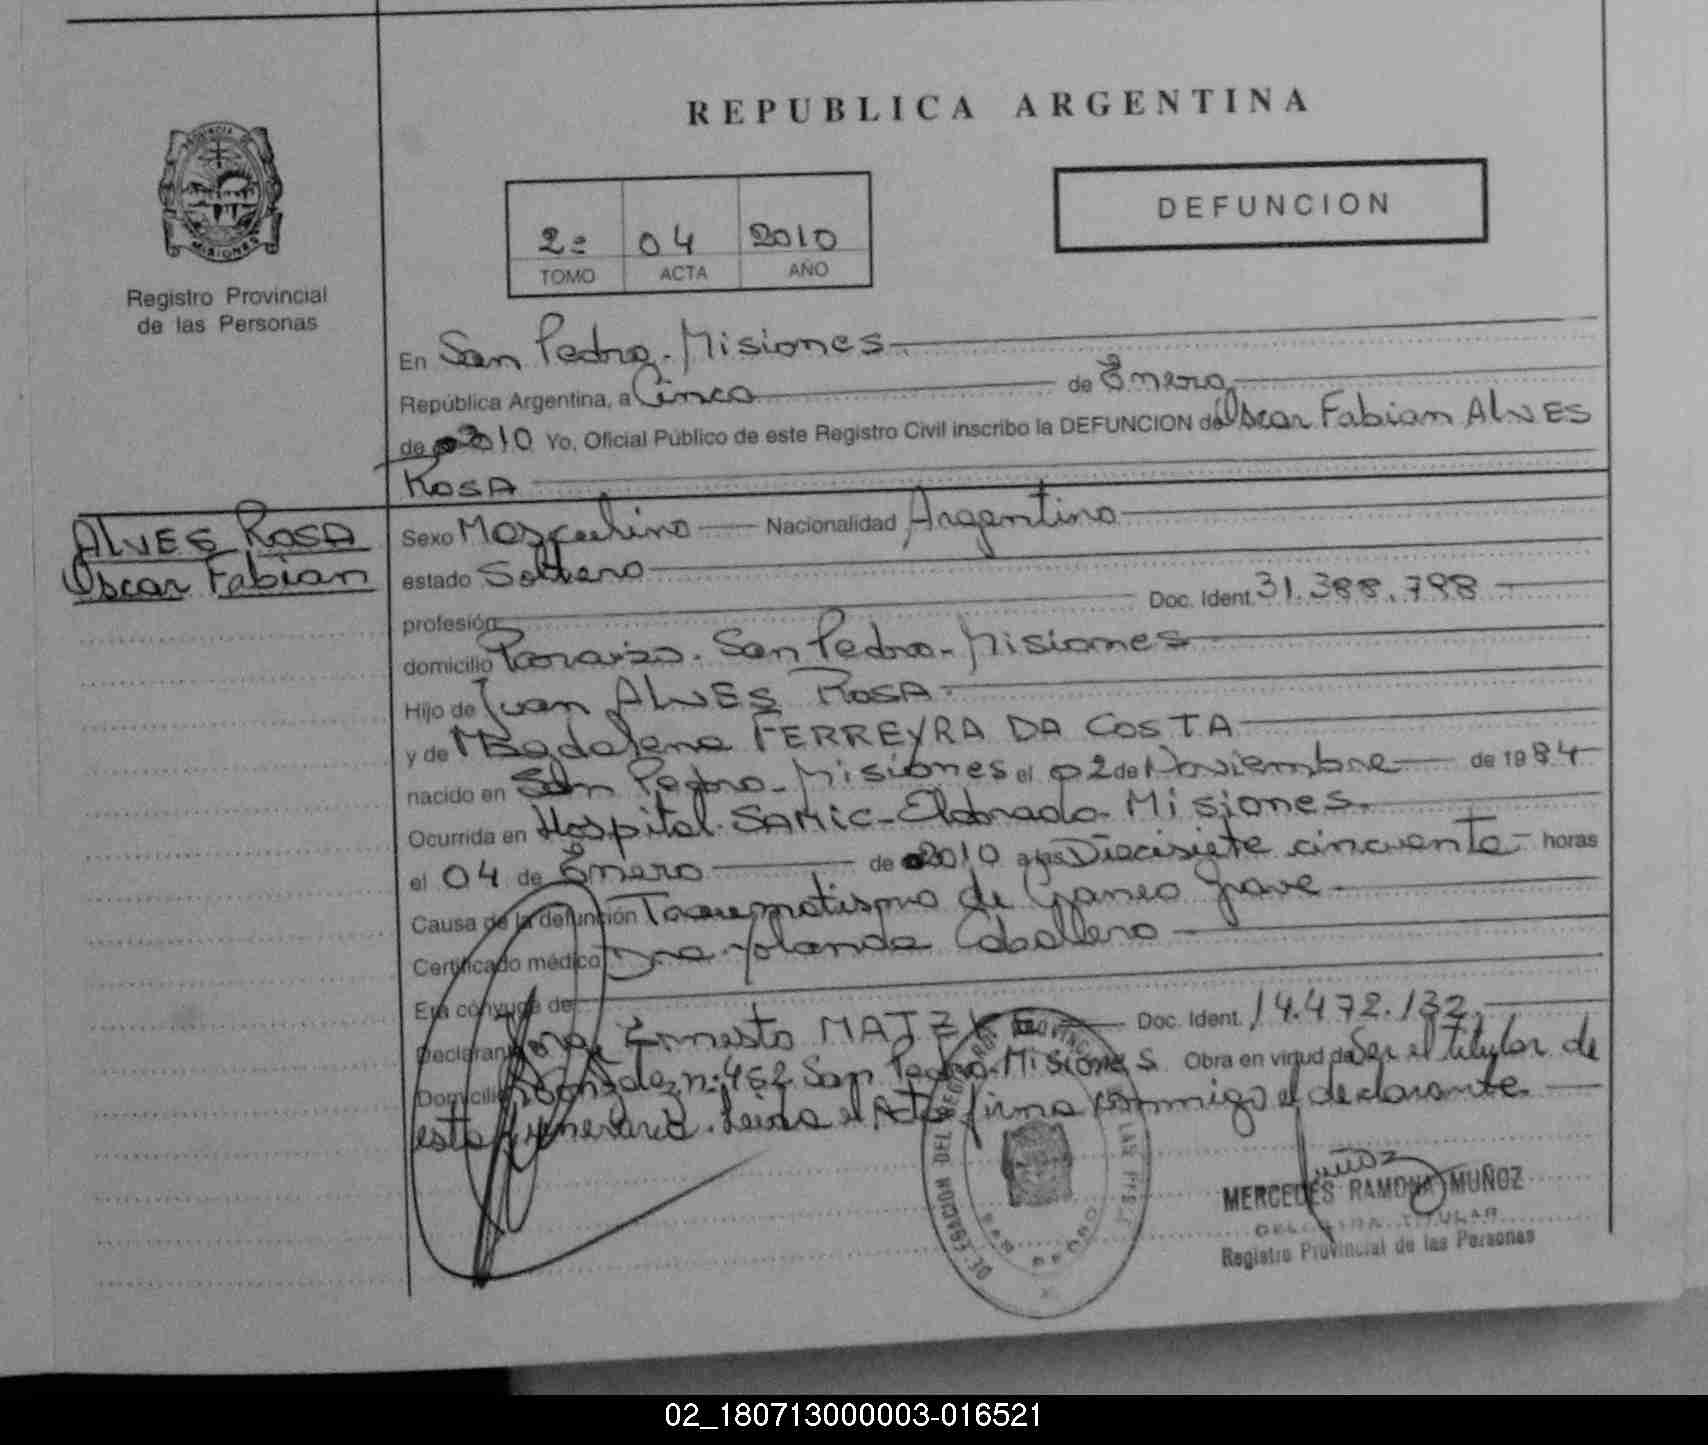 REPUBLICA ARGENTINA
DEFUNCION
2º 04 2010
TOMO ACTA AÑO
MISIONES
Registro Provincial
de las Personas
En San Pedro - Misiones
República Argentina, a Cinco de Enero
de 2010 Yo, Oficial Público de este Registro Civil inscribo la DEFUNCION de Oscar Fabian ALVES
ROSA
ALVES ROSA
Oscar Fabian
Sexo Masculino Nacionalidad Argentino
estado Soltero
profesión Doc. Ident. 31.388.798
domicilio Paraiso. San Pedro - Misiones
Hijo de Juan ALVES ROSA
y de Magdalena FERREYRA DA COSTA
nacido en San Pedro - Misiones el 02 de Noviembre de 1984
Ocurrida en Hospital SAMIC - Eldorado - Misiones.
el 04 de Enero de 2010 a las Diecisiete cincuenta horas
Causa de la defunción de Craneo grave
Certificado médico Dra Yolanda Caballero
Era cónyuge de
Declarante Jorge Ernesto MATZKE Doc. Ident. 14.472.132
Domicilio n: 452 San Pedro - Misiones Obra en virtud de Ser el titular de
esta funeraria. Leida el Acta firma conmigo el declarante.
DELEGACION DEL REGISTRO PROVINCIAL DE LAS PERS.
SAN PEDRO
Muñoz
MERCEDES RAMONA MUÑOZ
DELEGADA TITULAR
Registro Provincial de las Personas
02_180713000003-016521